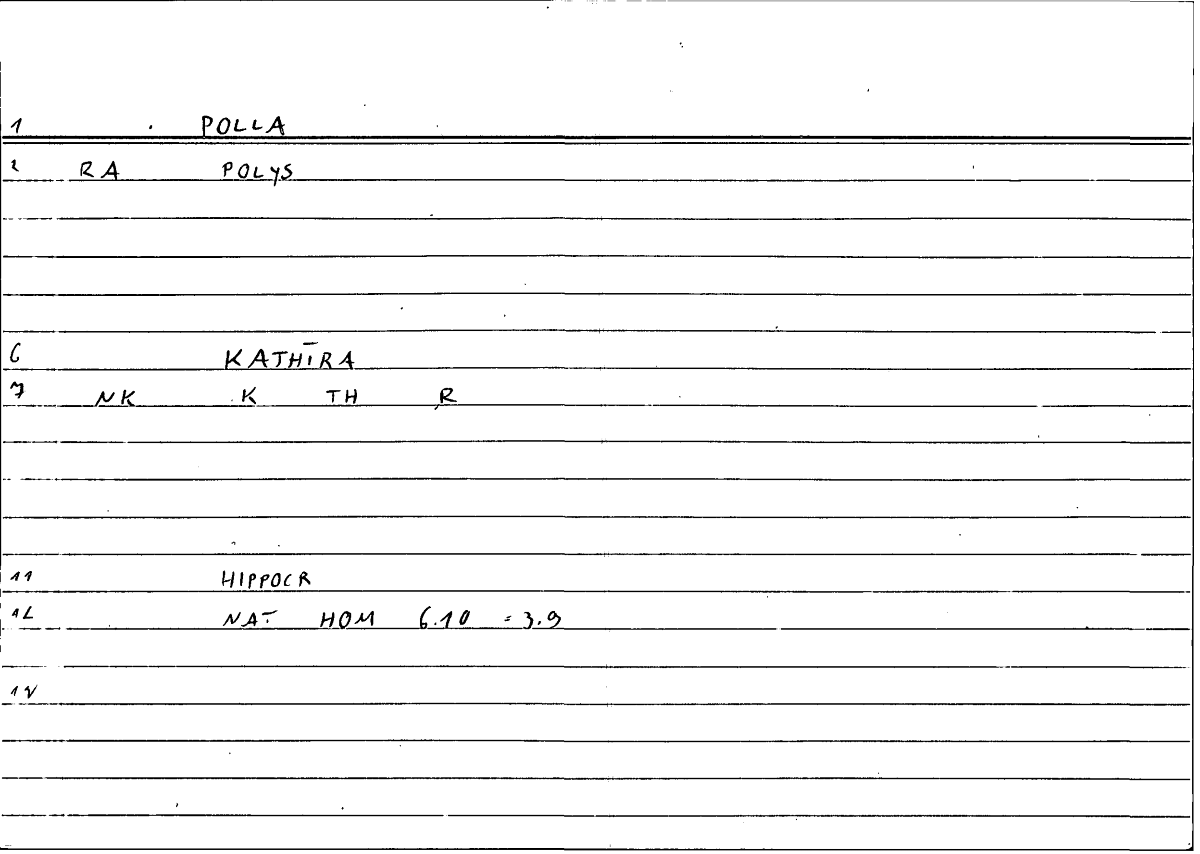 1 POLLA
2 RA POLYS
6 KATHĪRA
7 NK K TH R
11 HIPPOCR
12 NAT HOM 6.10 = 3.9